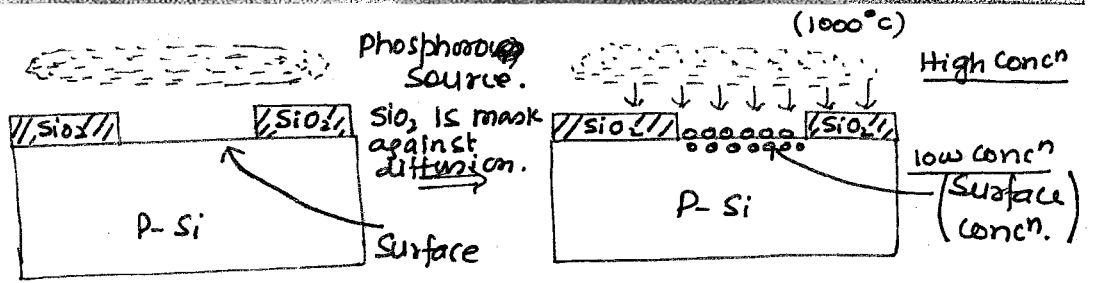 Phosphorous
source.
SiO2
SiO2
SiO2 is mask
against
diffusion.
P-Si
Surface
(1000°C)
High Concⁿ
SiO2
SiO2
low concⁿ
(Surface
concⁿ.)
P-Si